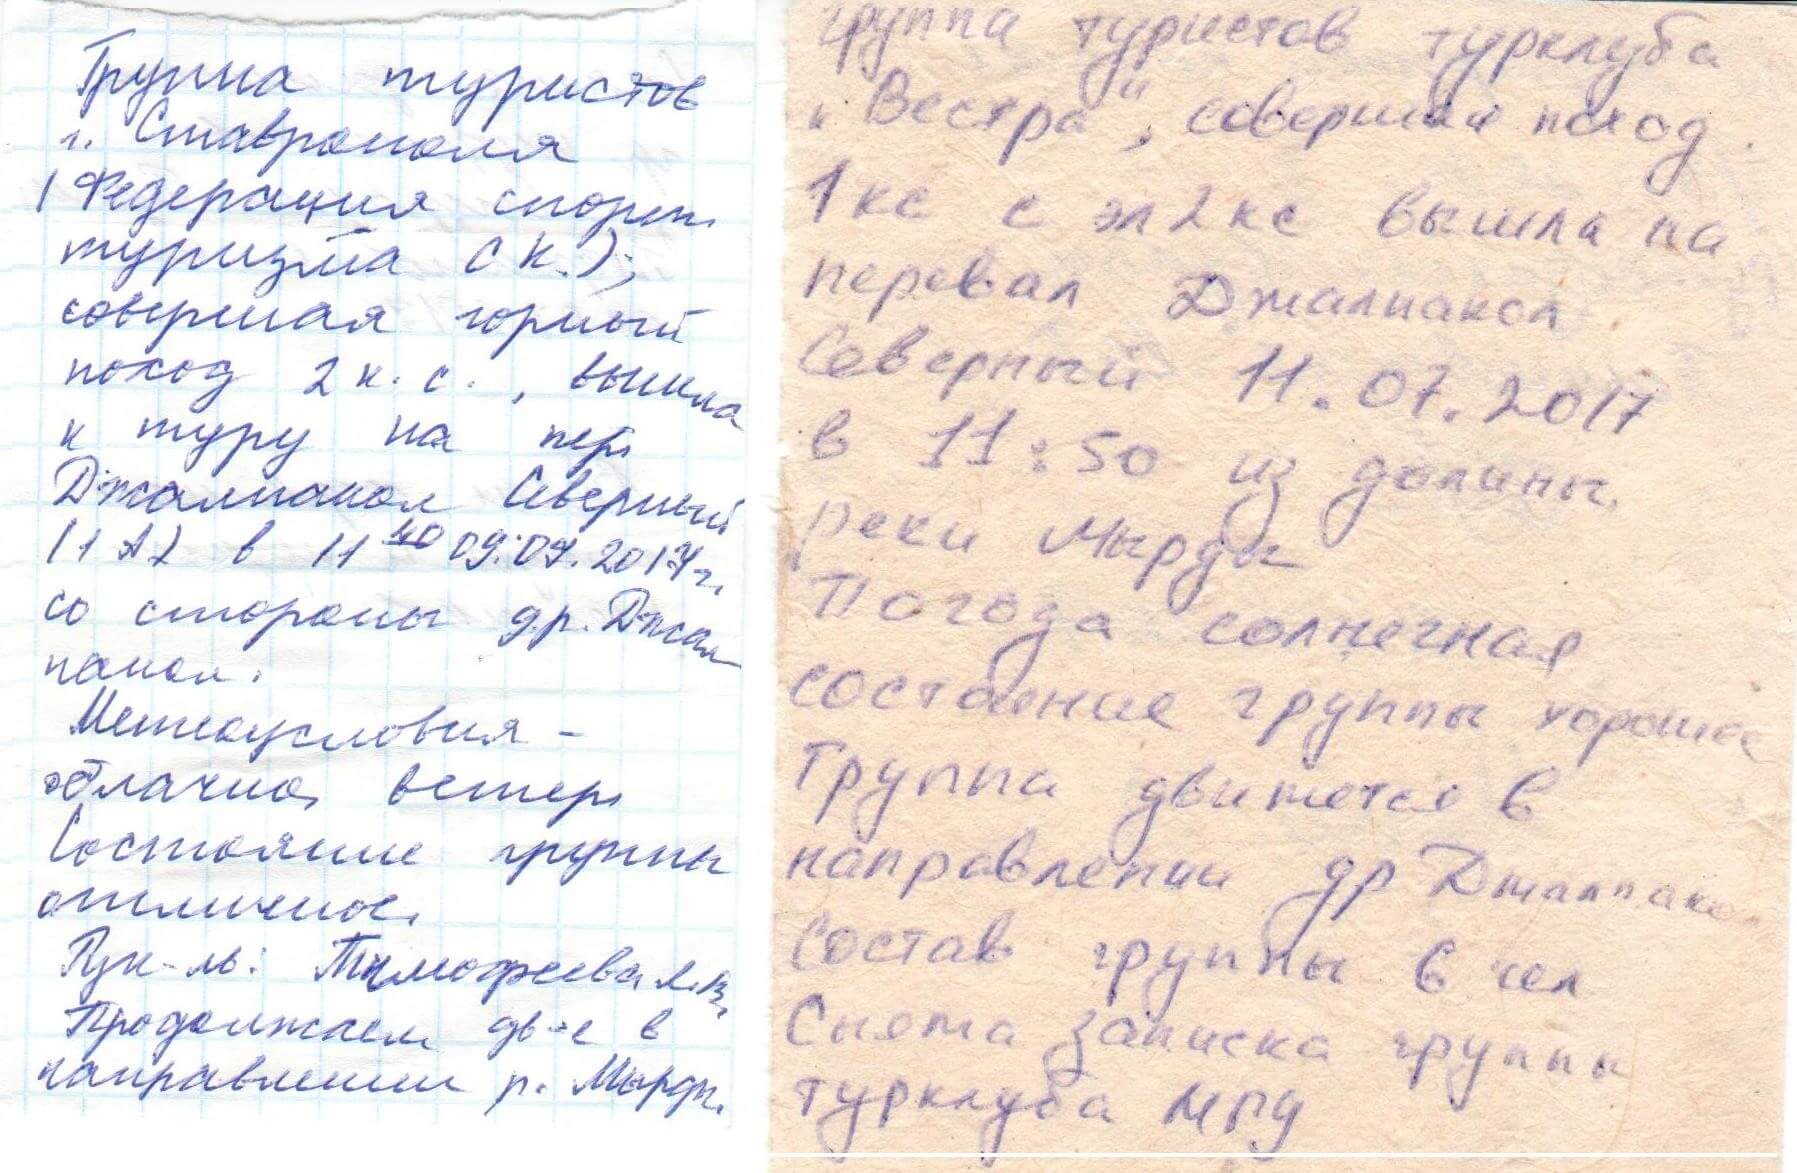 Группа туристов
г. Ставрополя
(Федерация спорт.
туризма СК.),
совершая горный
поход 2 к.с., вышла
к туру на пер.
Джалпакол Северный
(1А) в 11 40 09.07.2017г.
со стороны д.р. Джал
пакол.
Метеоусловия -
облачно, ветер.
Состояние группы
отличное.
Рук-ль: Тимофеева
Продолжаем дв-е в
направлении р. Мырды.
группа туристов турклуба
"Вестра", совершая поход
1 кс с эл 2 кс вышла на
перевал Джалпакол
Северный 11.07.2017
в 11:50 из долины
реки Мырды
Погода солнечная
состояние группы хорошее
Группа движется в
направлении др Джалпакол
Состав группы 6 чел
Снята записка группы
турклуба